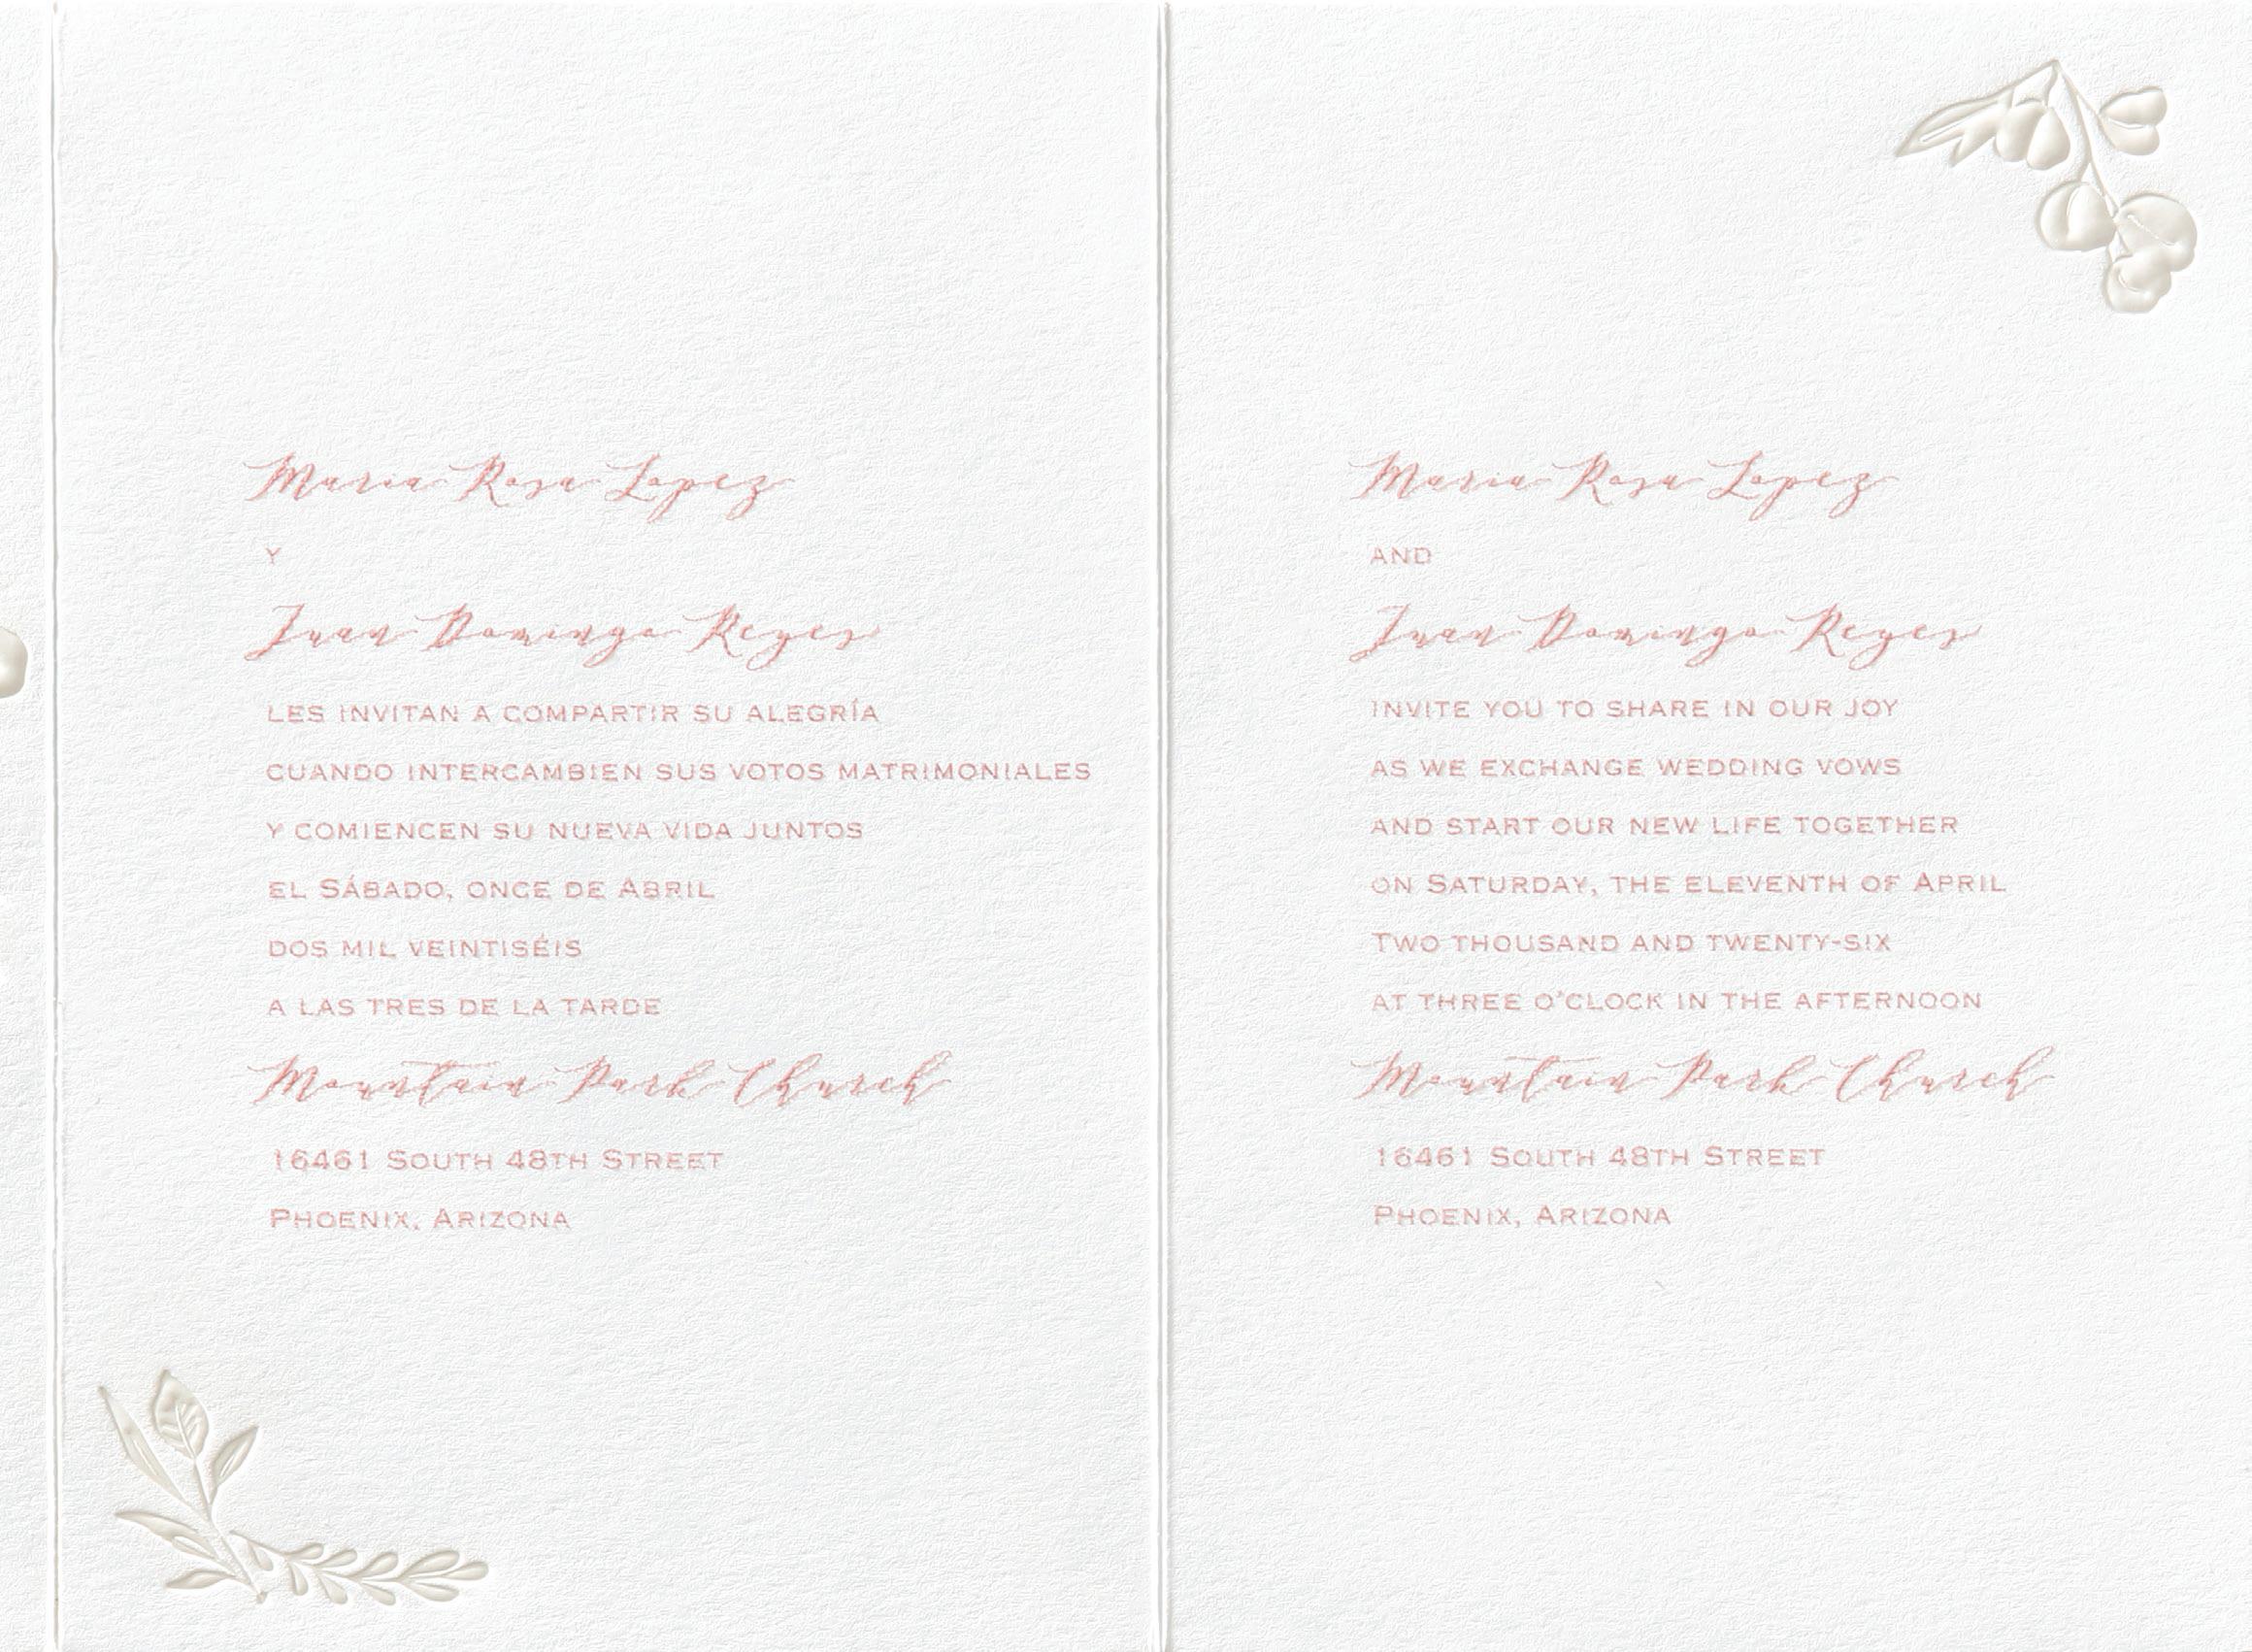 Maria Rosa Lopez
Y
Juan Domingo Reyes
LES INVITAN A COMPARTIR SU ALEGRÍA
CUANDO INTERCAMBIEN SUS VOTOS MATRIMONIALES
Y COMIENCEN SU NUEVA VIDA JUNTOS
EL SÁBADO, ONCE DE ABRIL
DOS MIL VEINTISÉIS
A LAS TRES DE LA TARDE
Mountain Park Church
16461 SOUTH 48TH STREET
PHOENIX, ARIZONA
Maria Rosa Lopez
AND
Juan Domingo Reyes
INVITE YOU TO SHARE IN OUR JOY
AS WE EXCHANGE WEDDING VOWS
AND START OUR NEW LIFE TOGETHER
ON SATURDAY, THE ELEVENTH OF APRIL
TWO THOUSAND AND TWENTY-SIX
AT THREE O'CLOCK IN THE AFTERNOON
Mountain Park Church
16461 SOUTH 48TH STREET
PHOENIX, ARIZONA